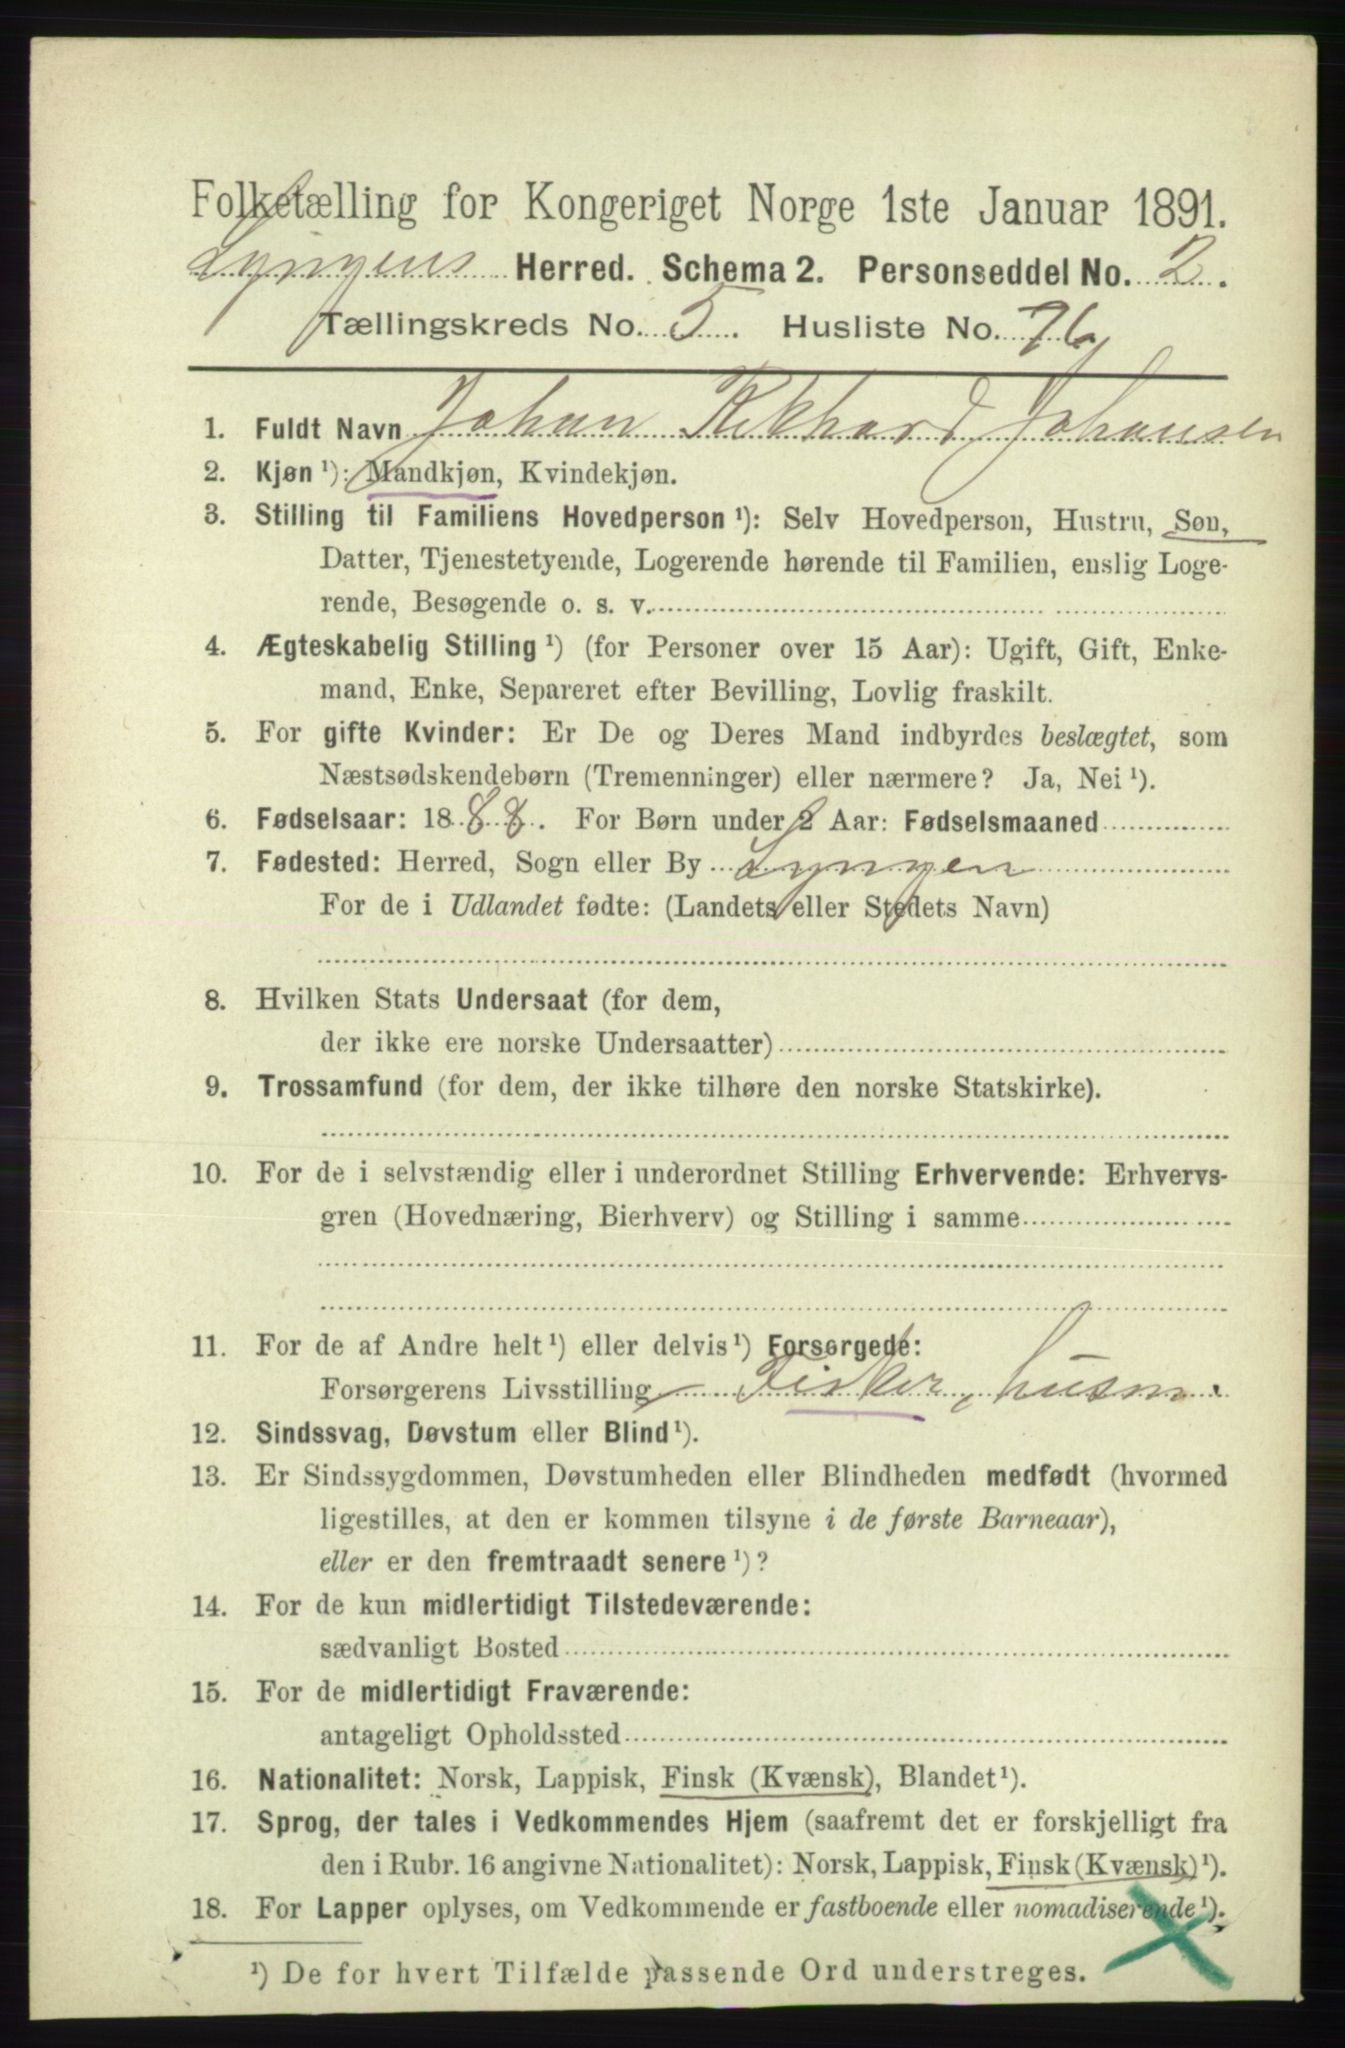 Folketælling for Kongeriget Norge 1ste Januar 1891.
Lyngens Herred. Schema 2. Personseddel No. 2.
Tællingskreds No. 5. Husliste No. 76
1. Fuldt Navn Johan Rikhard Johansen
2. Kjøn ¹): Mandkjøn, Kvindekjøn.
3. Stilling til Familiens Hovedperson ¹): Selv Hovedperson, Hustru, Søn,
Datter, Tjenestetyende, Logerende hørende til Familien, enslig Loge-
rende, Besøgende o. s. v.
4. Ægteskabelig Stilling ¹) (for Personer over 15 Aar): Ugift, Gift, Enke-
mand, Enke, Separeret efter Bevilling, Lovlig fraskilt.
5. For gifte Kvinder: Er De og Deres Mand indbyrdes beslægtet, som
Næstsødskendebørn (Tremenninger) eller nærmere? Ja, Nei ¹).
6. Fødselsaar: 1888. For Børn under 2 Aar: Fødselsmaaned
7. Fødested: Herred, Sogn eller By Lyngen
For de i Udlandet fødte: (Landets eller Stedets Navn)
8. Hvilken Stats Undersaat (for dem,
der ikke ere norske Undersaatter)
9. Trossamfund (for dem, der ikke tilhøre den norske Statskirke).
10. For de i selvstændig eller i underordnet Stilling Erhvervende: Erhvervs-
gren (Hovednæring, Bierhverv) og Stilling i samme
11. For de af Andre helt ¹) eller delvis ¹) Forsørgede:
Forsørgerens Livsstilling Fisker, husm.
12. Sindssvag, Døvstum eller Blind ¹).
13. Er Sindssygdommen, Døvstumheden eller Blindheden medfødt (hvormed
ligestilles, at den er kommen tilsyne i de første Barneaar),
eller er den fremtraadt senere ¹)?
14. For de kun midlertidigt Tilstedeværende:
sædvanligt Bosted
15. For de midlertidigt Fraværende:
antageligt Opholdssted
16. Nationalitet: Norsk, Lappisk, Finsk (Kvænsk), Blandet ¹).
17. Sprog, der tales i Vedkommendes Hjem (saafremt det er forskjelligt fra
den i Rubr. 16 angivne Nationalitet): Norsk, Lappisk, Finsk (Kvænsk) ¹).
18. For Lapper oplyses, om Vedkommende er fastboende eller nomadiserende ¹).
¹) De for hvert Tilfælde passende Ord understreges.